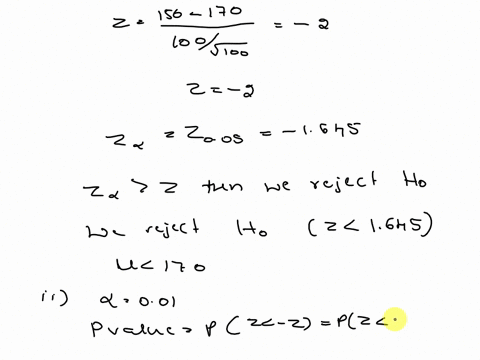 Z = 150 - 170 / 100/√100 = - 2
Z = -2
Zα = Z0.05 = -1.645
Zα > Z then we reject H0
We reject H0 (Z < 1.645)
μ < 170
ii) α = 0.01
P value = P (Z < -2) = P(Z <